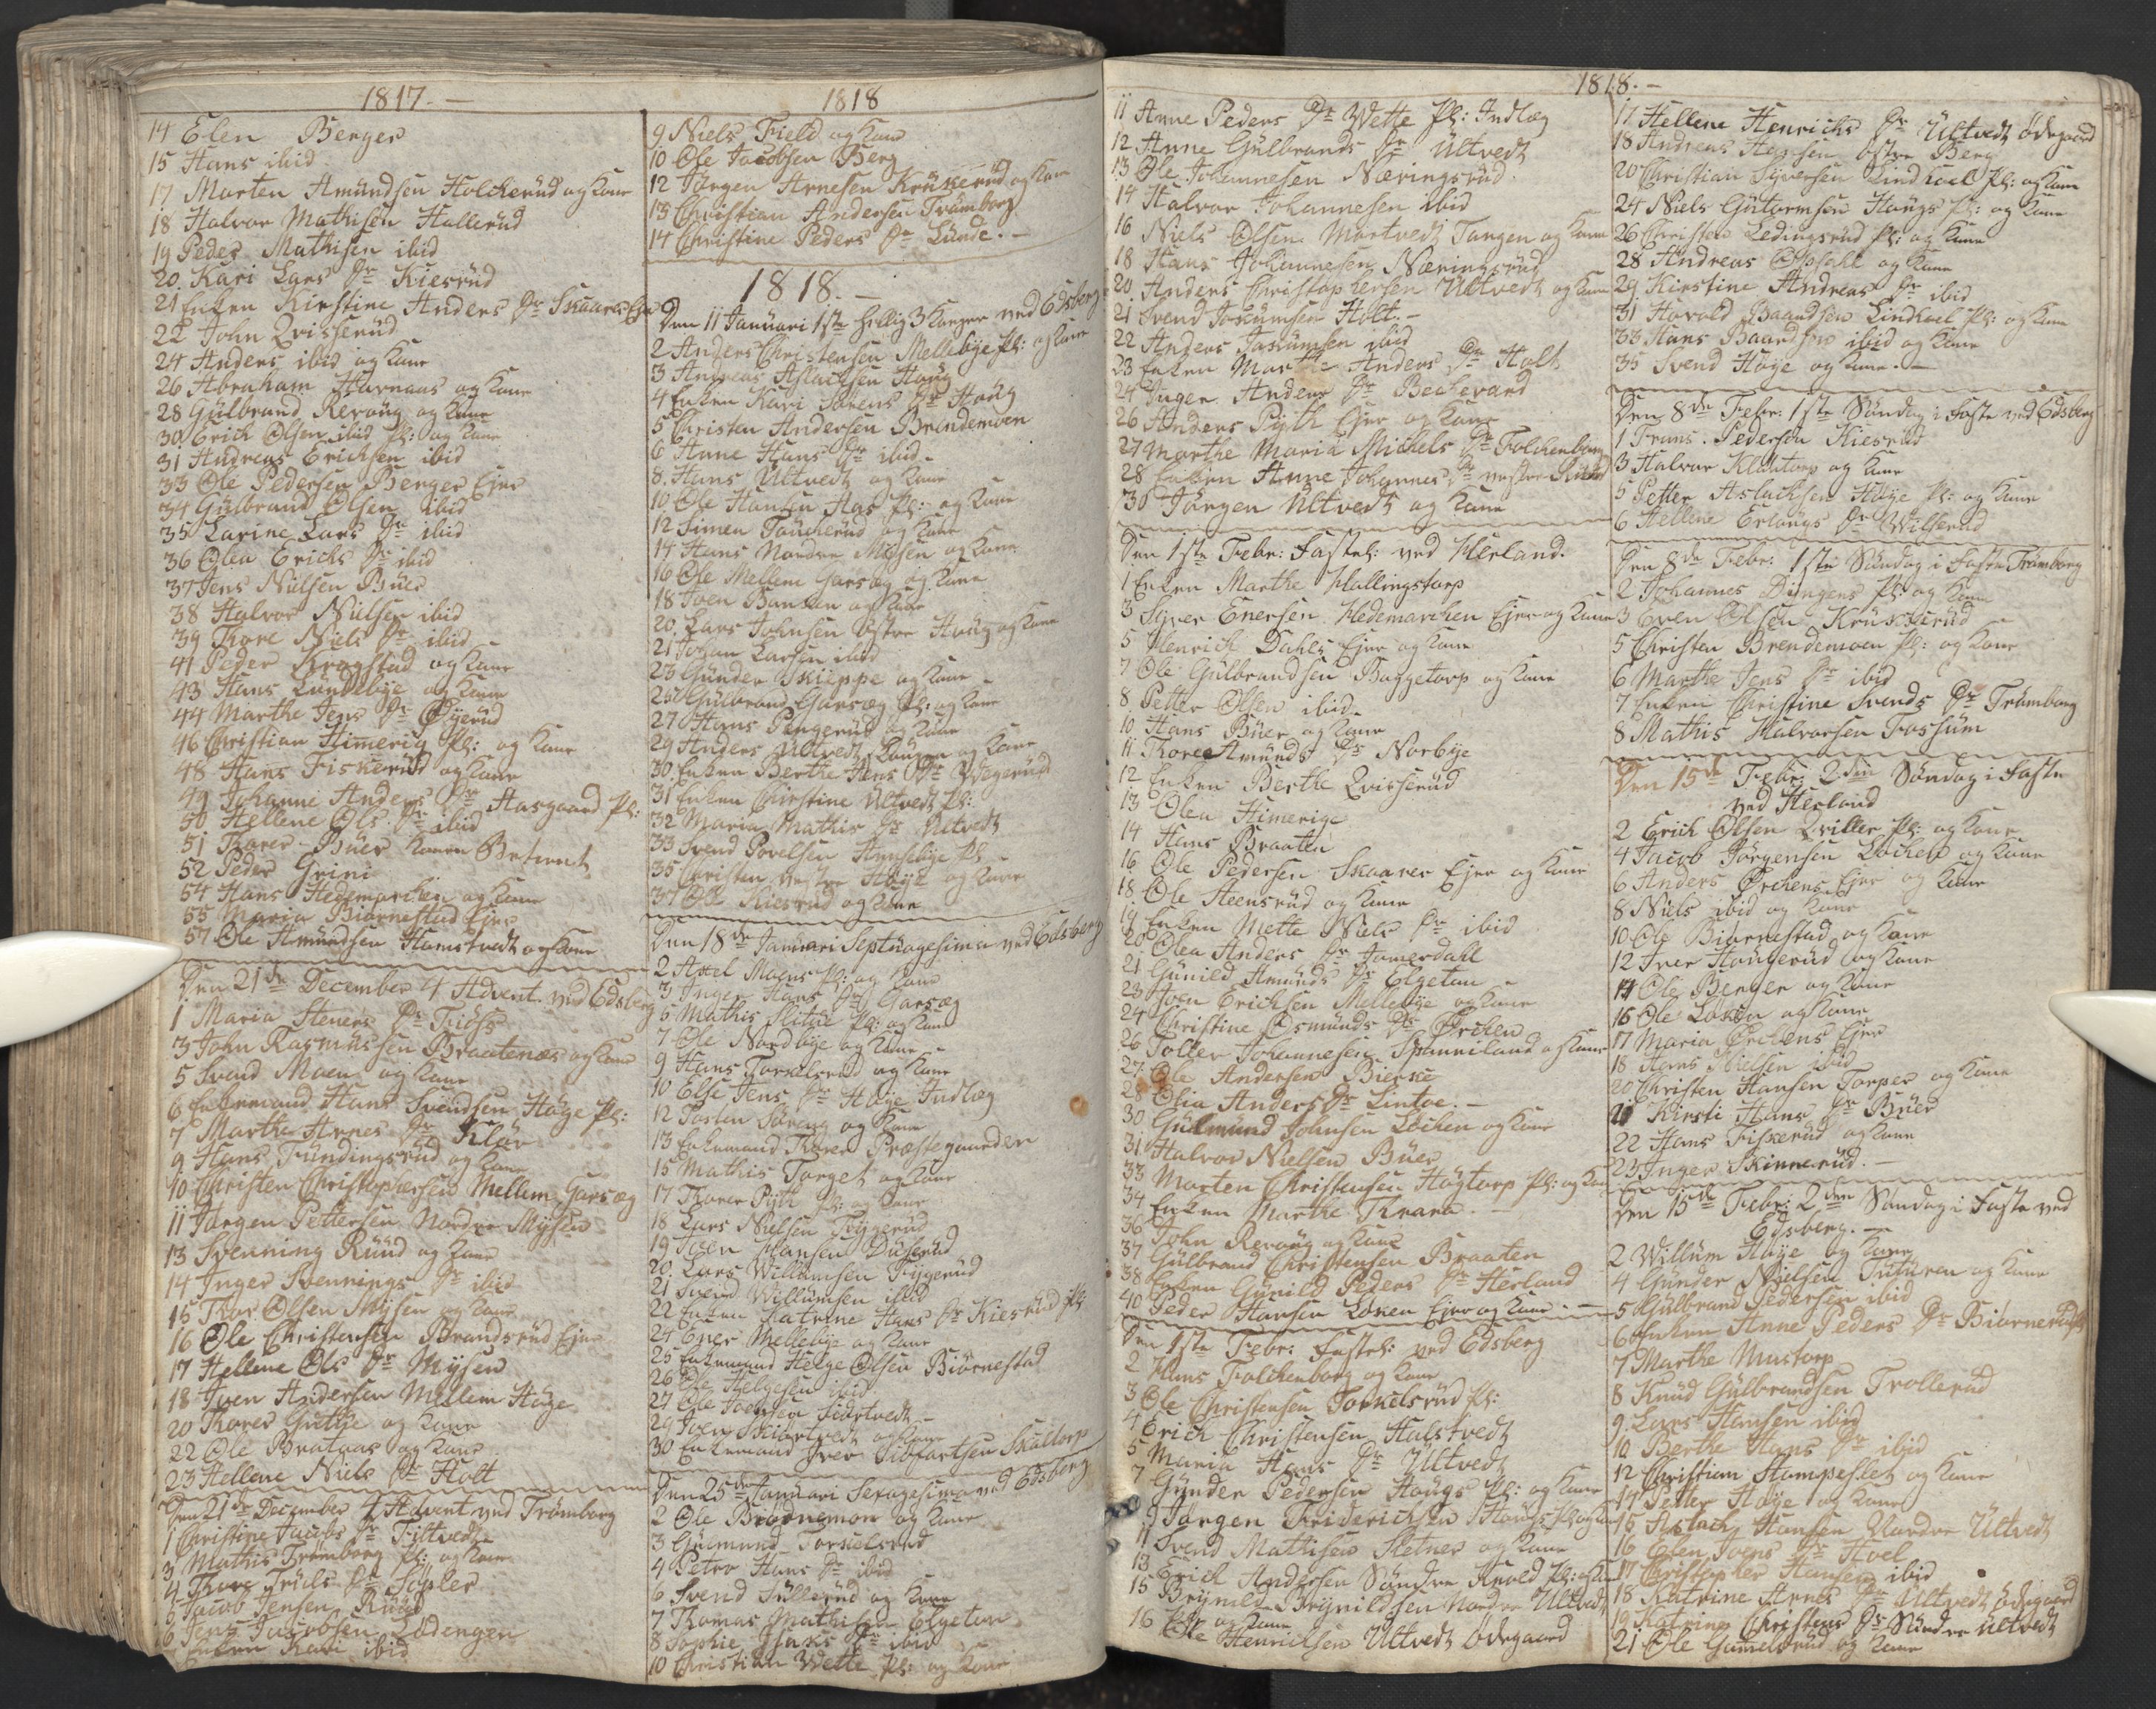 1817.-
14 Elen Berger
15 Hans ibid
17 Morten Amundsen Holckerud og Kone
18 Halvor Mathisen Hallerud
19 Peder Mathisen ibid
20. Kari Lars Dr Kiesrud
21 Enken Kirstine Anders Dr Skaarer
22 John Qvisserud
24 Anders ibid og Kone
26 Abraham Harnaas og Kone
28 Gulbrand Revoug og Kone
30 Erich Olsen ibid Pl: og Kone
31 Andreas Erichsen ibid
33 Ole Pedersen Berger Ejer
34 Gulbrand Olsen ibid
35 Karine Lars Dr ibid
36 Olea Erichs Dr ibid
37 Jens Nielsen Buer
38 Halvor Nielsen ibid
39 Thore Niels Dr ibid
41 Peder Krogstad og Kone
43 Hans Lundebye og Kone
44 Marthe Jens Dr Øyerud
46 Christian Himerig Pl: og Kone
48 Hans Fiskerud og Kone
49 Johanne Anders Dr Aasgaard Pl:
50 Hellene Ols Dr ibid
51 Thorer Buer
52 Peder Grini
54 Hans Hedemarchen og Kone
55 Maria Biørnestad Ejer
57 Ole Amundsen Hamstvedt og Kone
Den 21de December 4 Advent ved Edsberg
1 Maria Steners Dr Friøss
3 John Rasmussen Braatenæs og Kone
5 Svend Moen og Kone
6 Enkemand Hans Svendsen Høye Pl:
7 Marthe Arnes Dr Kløv
9 Hans Fundingsrud og Kone
10 Christen Christophersen Mellem Garsæg
11 Jørgen Pettersen Nordre Mysen
13 Svenning Ruud og Kone
14 Inger Svennings Dr ibid
15 Thor Olsen Mysen og Kone
16 Ole Christensen Brandsrud Ejer
17 Hellene Ols Dr Mysen
18 Joen Andersen Mellem Høye
20 Thorer Guthe og Kone
22 Ole Brataas og Kone
23 Hellene Niels Dr Holt
Den 21de December 4 Advent ved Trømborg
1 Christine Jacobs Dr Tiltvedt
3 Mathis Trømborg Pl: og Kone
4 Thore Truls Dr Sopler
5 Jacob Jensen Ruud
6 Jens Jacobsen Lødengen
Enken Kari ibid
1818
9 Niels Field og Kone
10 Ole Jacobsen Berg
12 Jørgen Arnesen Kruserud og Kone
13 Christian Andersen Trømborg
14 Christine Peders Dr Lunde.-
1818.-
Den 11 Januari 1ste Hellig 3 Konger ved Edsberg
2 Anders Christensen Mellebye Pl: og Kone
3 Andreas Aslachsen Houg
4 Enken Kari Sørens Dr Houg
5 Christen Andersen Brendemoen
6 Anne Hans Dr ibid
8. Hans Ultvedt og Kone
10 Ole Hansen Aas Pl: og Kone
12 Simen Touckerud og Kone
14 Hans Nordre Mysen og Kone
16 Ole Mellem Garsæg og Kone
18 Joen Banken og Kone
20 Lars Johnsen østre Houg og Kone
21 Johan Larsen ibid
23 Gunder Skieppe og Kone
25 Gulbrand Garsæg Pl: og Kone
27 Hans Pengerud og Kone
29 Anders Ultvedt Lougen og Kone
30 Enken Berthe Jens Dr Wegerud
31 Enken Christine Ultvedt Pl:
32 Maria Mathis Dr Ultvedt
33 Svend Povelsen Hunsebye Pl
35 Christen vestre Høye og Kone
37 Ole Kiesrud og Kone
Den 18de Januari Septuagesima ved Edsberg
2 Axel Moens Pl: og Kone
3 Inger Hans Dr Garsæg
5 Mathis Slitue Pl: og Kone
7 Ole Nordbye og Kone
9 Hans Torkelsrud og Kone
10 Else Jens Dr Høye Indlæg
12 Torsten Søreng og Kone
13 Enkemand Thorer Præstegaarden
15 Mathis Torget og Kone
17 Thorer Pyth Pl: og Kone
18 Lars Nielsen Frygerud
19 Joen Hansen Duserud
20 Lars Willumsen Frygerud
21 Svend Willumsen ibid
22 Enken Katrine Hans Dr Kiesrud Pl:
24 Ener Mellebye og Kone
25 Enkemand Helge Olsen Biørnestad
26 Ole Helgesen ibid
27 Ole Joensen Fiørtvedt
29 Joen Skiørtvedt og Kone
30 Enkemand Iver Sibfartsen Skaltorp
Den 25de Januari Sexagesima ved Edsberg
2 Ole Brødremoen og Kone
3 Gulmund Torkelsrud
4 Petro Hans Dr ibid
6 Svend Sullerud og Kone
7 Thomas Mathisen Elgeton
8 Sophie Hans Dr ibid
10 Christian Wette Pl: og Kone
1818.-
11 Anne Peders Dr Wette Pl: Indlæg
12 Anne Gulbrands Dr Ultvedt
13 Ole Johannesen Næringsrud
14 Halvor Johannesen ibid
16 Niels Olsen Mortvedt Tangen og Kone
18 Hans Johannesen Næringsrud
20 Anders Christophersen Ultvedt og Kone
21 Svend Joxumsen Holt.-
22 Anders Joxumsen ibid
23 Enken Marthe Anders Dr Holt
24 Inger Anders Dr Beachevard
26 Anders Pyth Ejer og Kone
27 Marthe Maria Michels Dr Folchenborg
28 Enken Anne Johannes Dr vestre Ruud
30 Jørgen Ultvedt og Kone
Den 1ste Febr: Fastel: ved Herland.
1 Enken Marthe Hallingstorp
3 Syver Enersen Hedemarchen Ejer og Kone
5 Henrich Dahls Ejer og Kone
7 Ole Gulbrandsen Baggetorp og Kone
8 Petter Olsen ibid
10 Hans Buer og Kone
11 Thore Amunds Dr Norbye
12 Enken Berthe Qvisserud
13 Olea Himerige
14 Hans Braaten
16 Ole Pedersen Skaarer Ejer og Kone
18 Ole Steensrud og Kone
19 Enken Mette Niels Dr ibid
20 Olea Anders Dr Jomerdahl
21 Gunild Amunds Dr Elgeton
23 Joen Erichsen Mellebye og Kone
24 Christine Osmunds Dr Ørchen
26 Toller Johannesen Spanniland og Kone
27 Ole Andersen Bierke
28 Olia Anders Dr Lintoe.-
30 Gulmund Johnsen Løchen og Kone
31 Halvor Nielsen Buer
33 Morten Christensen Høgtorp Pl: og Kone
34 Enken Marthe Krara.-
36 John Revoug og Kone
37 Gulbrand Christensen Braaten
38 Enken Gunild Peders Dr Herland
40 Peder Hansen Løken Ejer og Kone.-
Den 1ste Febr: Fastel: ved Edsberg
2 Hans Folchenborg og Kone
3 Ole Christensen Torkelsrud Pl:
4 Erich Christensen Halstvedt
5 Maria Hans Dr Ultvedt
7 Gunder Pedersen Hougs Pl: og Kone
9 Jørgen Friderichsen Hougs Pl: og Kone
11 Svend Mathisen Sletner og Kone
13 Erich Andersen Søndre Knold Pl: og Kone
15 Brynild Brynildsen Nordre Ultvedt
og Kone
16 Ole Henrichsen Ultvedt Ødegaard
17 Hellene Henrichs Dr Ultvedt Ødegaard
18 Andreas Hansen østre Berg
20 Christian Syversen Lindhoel Pl: og Kone
24 Niels Gutormsen Hougs Pl: og Kone
26 Christen Ledingsrud Pl: og Kone
28 Andreas Opsahl og Kone
29 Kirstine Andreas Dr ibid
31 Harold Baardsen Lindhoel Pl: og Kone
33 Hans Baardsen ibid og Kone
35 Svend Høye og Kone.-
Den 8de Febr: 1ste Søndag i Faste ved Edsberg
1 Frans Pedersen Kiesrud
3 Halvor Klastorp og Kone
5 Petter Aslachsen Høye Pl: og Kone
6 Hellene Erlougs Dr Wilserud
Den 8de Febr: 1ste Søndag i Faste Trømborg
2 Johannes Dingens Pl: og Kone
3 Even Olsen Kruxserud
5 Christen Brendemoen Pl: og Kone
6 Marthe Jens Dr ibid
7 Enken Christine Svends Dr Trømborg
8 Mathis Halvorsen Fossum
Den 15de Febr: 2den Søndag i Faste
ved Herland
2 Erich Olsen Qviller Pl: og Kone
4 Jacob Jørgensen Løchen og Kone
6 Anders Ørchens Ejer og Kone
8 Niels ibid og Kone
10 Ole Biørnestad og Kone
12 Iver Hougerud og Kone
14 Ole Berger og Kone
16 Ole Løken og Kone
17 Maria Ørchens Ejer
18 Hans Nielsen ibid
20 Christen Hansen Torper og Kone
21 Kirsti Hans Dr Buer
22 Hans Fiskerud og Kone
23 Inger Skinnerud.-
Den 15de Febr: 2den Søndag i Faste ved
Edsberg.-
2 Willum Høye og Kone
4 Gunder Nielsen Tuturen og Kone
5 Gulbrand Pedersen ibid
6 Enken Anne Peders Dr Biørnestad
7 Marthe Mustorp
8 Knud Gulbrandsen Trollerud
9 Lars Hansen ibid
10 Berthe Hans Dr ibid
12 Christian Stampeslet og Kone
14 Petter Høye og Kone
15 Aslach Hansen Nordre Ultvedt
16 Elen Joens Dr Hoel
17 Christopher Hansen ibid
18 Katrine Arnes Dr Ultvedt Ødegaard
19 Katrine Christens Dr Søndre Ultvedt
21 Ole Gunnelsrud og Kone